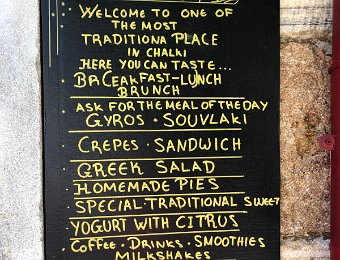 · WELCOME TO ONE OF
THE MOST
TRADITIONA PLACE
IN CHALKI
HERE YOU CAN TASTE...
· BACEAKFAST-LUNCH
BRUNCH
· ASK FOR THE MEAL OF THE DAY
GYROS · SOUVLAKI
· CREPES · SANDWICH
· GREEK SALAD
· HOMEMADE PIES
· SPECIAL-TRADITIONAL SWEET
· YOGURT WITH CITRUS
· COFFEE · DRINKS · SMOOTHIES
MILKSHAKES